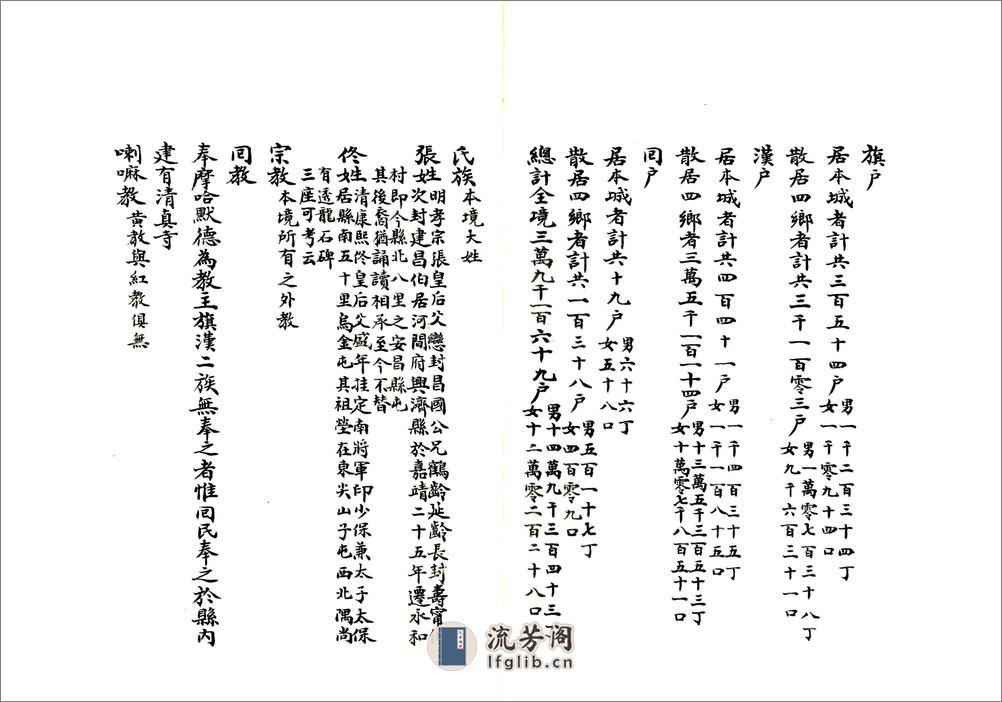 旗戶
居本城者計共三百五十四戶男一千二百三十四丁女一千零九十四口
散居四鄉者計共三千一百零三戶男一萬零七百三十八丁女九千六百三十一口
漢戶
居本城者計共四百四十一戶男一千四百三十五丁女一千一百八十五口
散居四鄉者三萬五千一百一十四戶男十三萬五千三百五十三丁女十萬零七千八百五十一口
回戶
居本城者計共十九戶男六十六丁女五十八口
散居四鄉者計共一百三十八戶男五百一十七丁女四百零九口
總計全境三萬九千一百六十九戶男十四萬九千三百四十三丁女十二萬零二百二十八口
氏族本境大姓
張姓明孝宗張皇后父巒封昌國公兄鶴齡延齡長封壽甯
次封建昌伯居河間府興濟縣於嘉靖二十五年遷永和
村即今縣北八里之安昌縣屯
其後裔猶誦讀相承至今不替
佟姓清康熙佟皇后父盛年挂定南將軍印少保兼太子太保
居縣南五十里烏金屯其祖塋在東尖山子屯西北隅尚
有透龍石碑
三座可考云
宗教本境所有之外教
回教
奉摩哈默德為教主旗漢二族無奉之者惟回民奉之於縣內
建有清真寺
喇嘛教黃教與紅教俱無
流芳阁
lfglib.cn